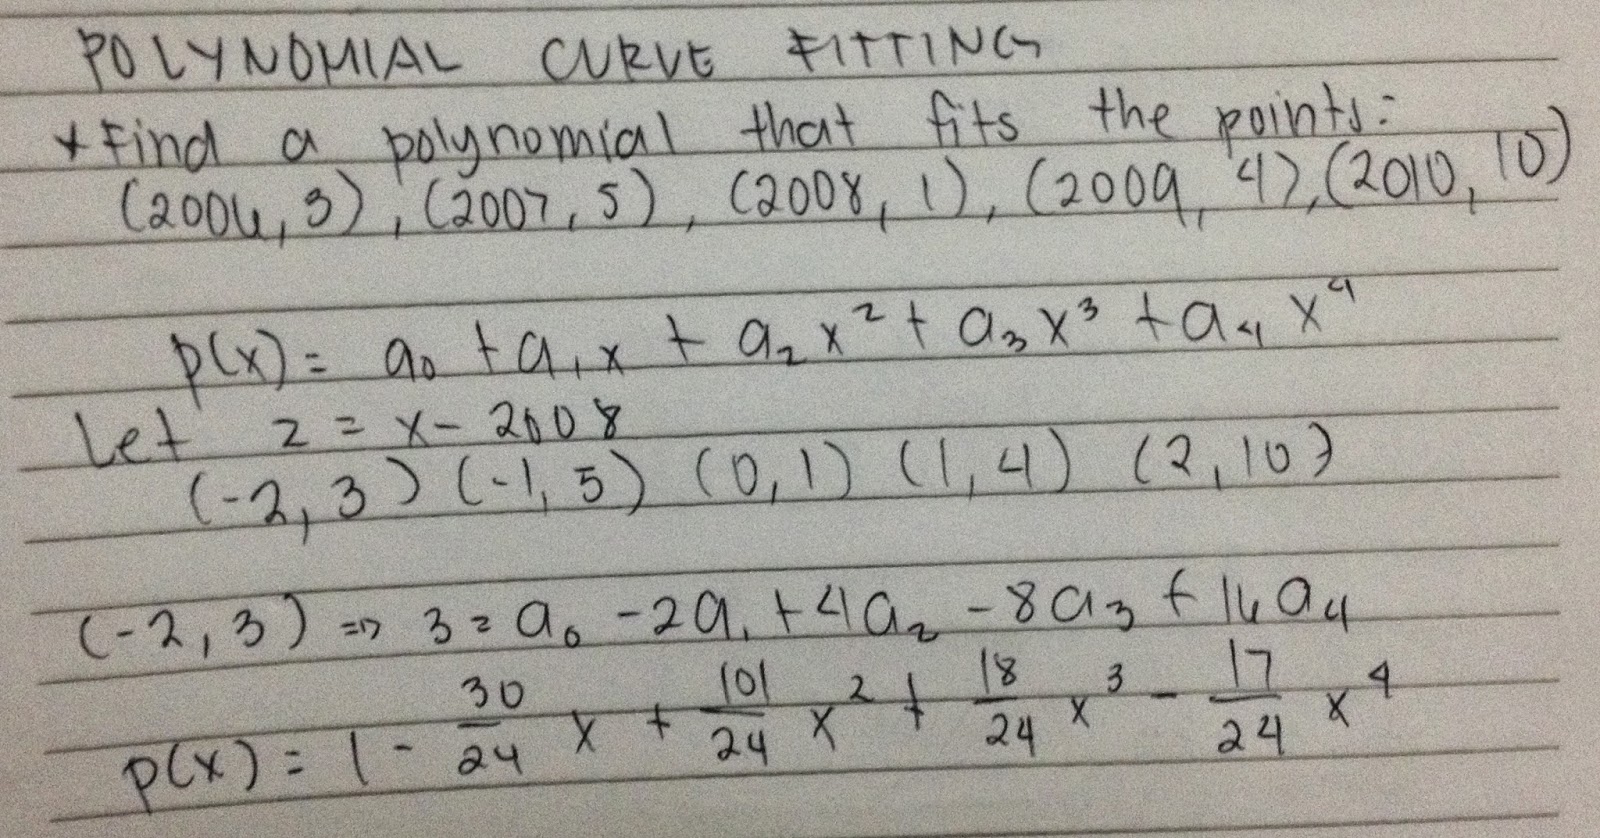 POLYNOMIAL CURVE FITTING
* Find a polynomial that fits the points:
(2006, 3), (2007, 5), (2008, 1), (2009, 4), (2010, 10)
p(x) = a₀ + a₁x + a₂x² + a₃x³ + a₄x⁴
Let z = x - 2008
(-2, 3) (-1, 5) (0, 1) (1, 4) (2, 10)
(-2, 3) => 3 = a₀ - 2a₁ + 4a₂ - 8a₃ + 16a₄
p(x) = 1 - 30/24 x + 101/24 x² + 18/24 x³ - 17/24 x⁴